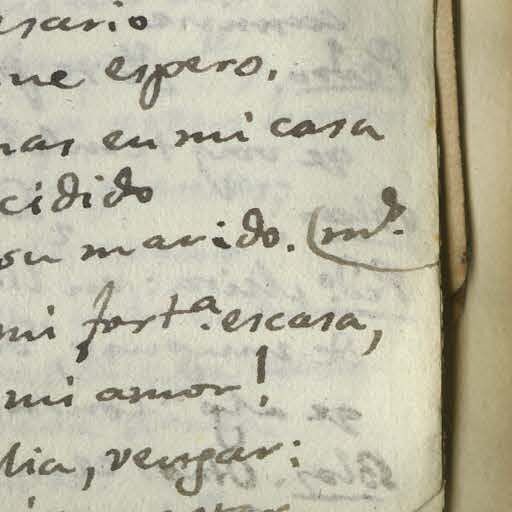 esario
ue espero.
nas en mi casa
cidido
on marido. (md.
mi forta. escasa,
mi amor!
lia, vengar: